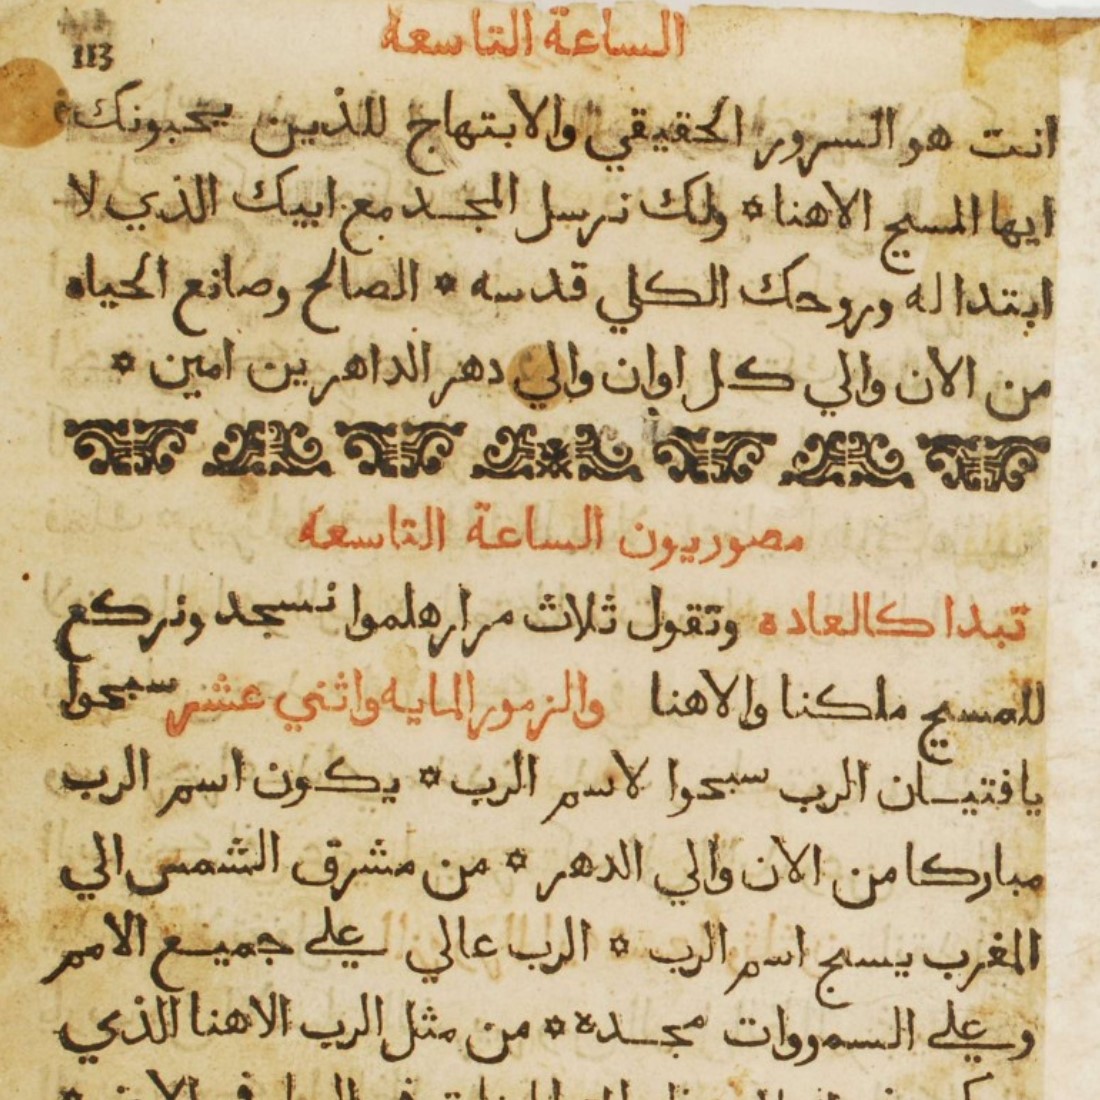 الساعة التاسعه
113
انت هو السرور الحقيقي والابتهاج للذين يحبونك
ايها المسيح الاهنا ۞ ولك نرسل المجد مع ابيك الذي لا
ابتدا له وروحك الكلي قدسه ۞ الصالح وصانع الحياه
من الان والي كل اوان والي دهر الداهرين امين ۞
مصوريون الساعة التاسعه
تبدا كالعاده وتقول ثلاث مرار هلموا نسجد ونركع
للمسيح ملكنا والاهنا والزمور المايه واثني عشر سبحوا
يافتيان الرب سبحوا لاسم الرب ۞ يكون اسم الرب
مباركا من الان والي الدهر ۞ من مشرق الشمس الي
المغرب يسبح اسم الرب ۞ الرب عالي علي جميع الامم
وعلي السمووات مجده ۞ من مثل الرب الاهنا الذي